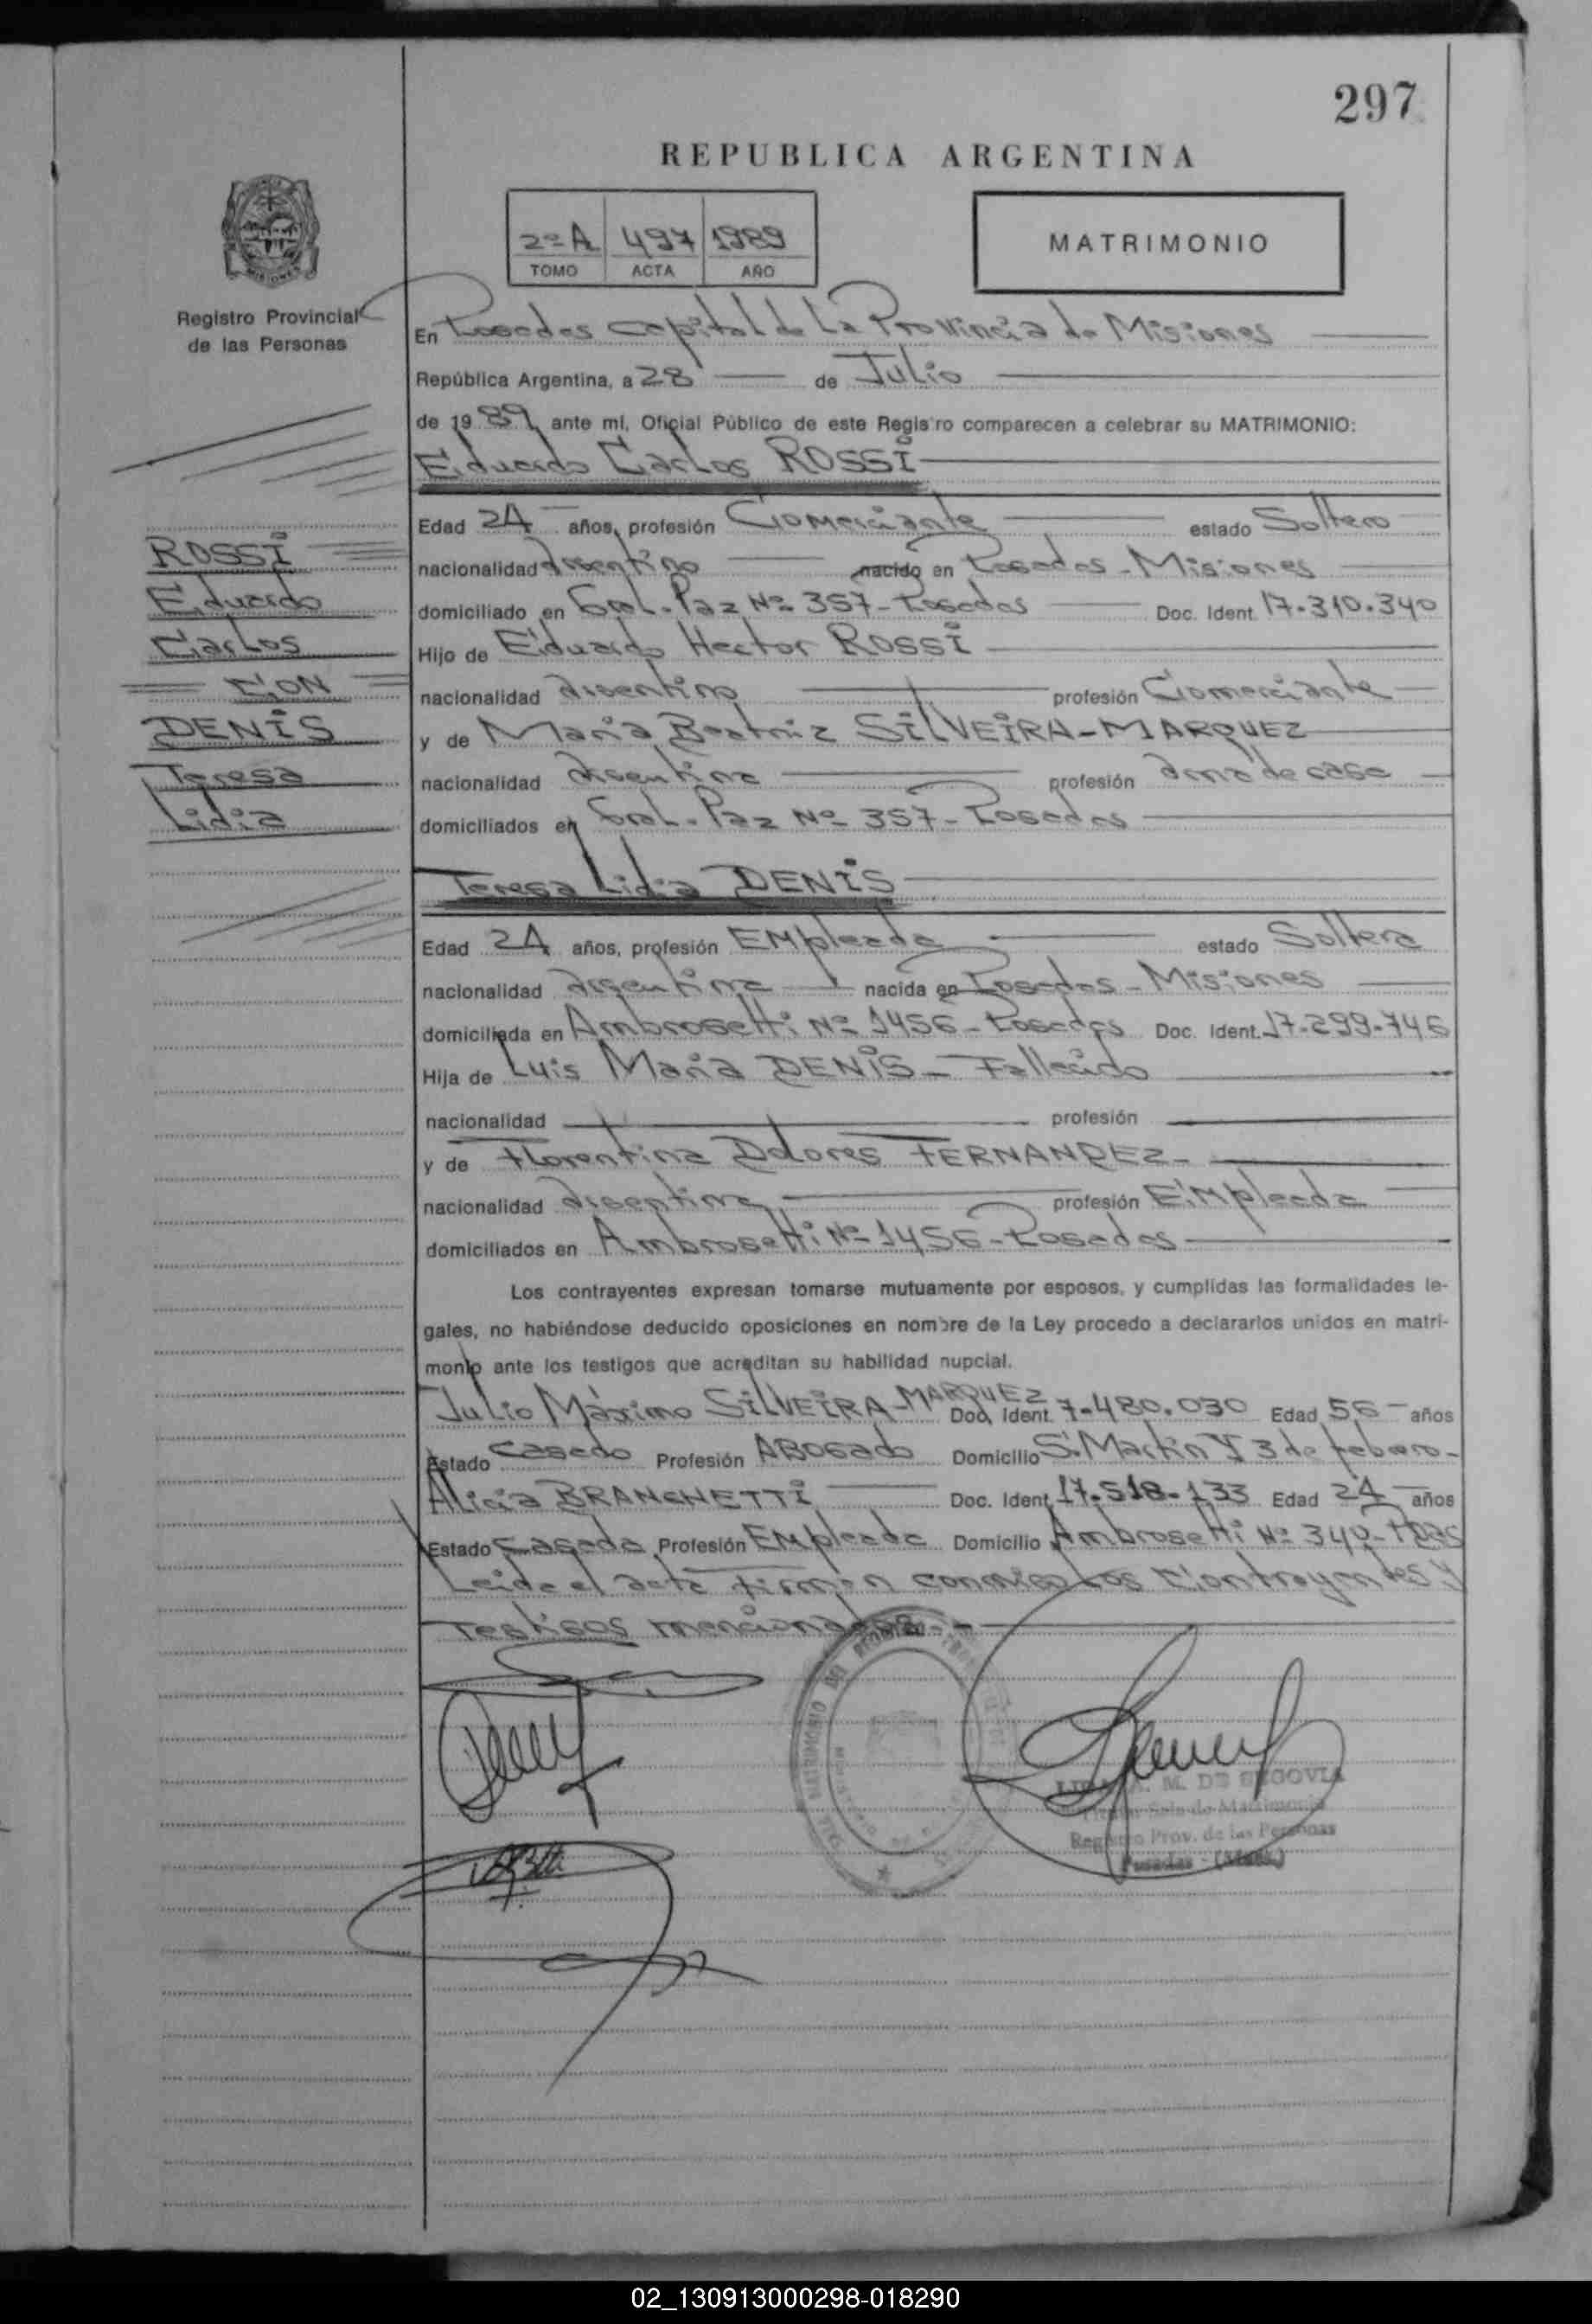 297
REPUBLICA ARGENTINA
2º A 497 1989
TOMO ACTA AÑO
MATRIMONIO
MISIONES
Registro Provincial
de las Personas
En Posadas capital de La Provincia de Misiones
República Argentina, a 28 de Julio
de 1989, ante mí, Oficial Público de este Registro comparecen a celebrar su MATRIMONIO:
Eduardo Carlos ROSSI
Edad 24 años, profesión Comerciante estado Soltero
nacionalidad Argentino nacido en Posadas - Misiones
domiciliado en Gral. Paz Nº 357 - Posadas Doc. Ident. 17.310.340
Hijo de Eduardo Hector ROSSI
nacionalidad argentino profesión Comerciante
y de Maria Beatriz SILVEIRA-MARQUEZ
nacionalidad argentina profesión ama de casa
domiciliados en Gral. Paz Nº 357 - Posadas
ROSSI
Eduardo
Carlos
CON
DENIS
Teresa
Lidia
Teresa Lidia DENIS
Edad 24 años, profesión EMpleada estado Soltera
nacionalidad argentina nacida en Posadas - Misiones
domiciliada en Ambrosetti Nº 1456 - Posadas Doc. Ident. 17.299.746
Hija de Luis Maria DENIS - Fallecido
nacionalidad profesión
y de Florentina Dolores FERNANDEZ -
nacionalidad argentina profesión EMpleada
domiciliados en Ambrosetti Nº 1456 - Posadas
Los contrayentes expresan tomarse mutuamente por esposos, y cumplidas las formalidades le-
gales, no habiéndose deducido oposiciones en nombre de la Ley procedo a declararlos unidos en matri-
monio ante los testigos que acreditan su habilidad nupcial.
Julio Máximo SILVEIRA-MARQUEZ Doc. Ident. 7.480.030 Edad 56 años
Estado Casado Profesión ABogado Domicilio S. Martin Y 3 de febrero -
Alicia BRANCHETTI Doc. Ident. 17.518.133 Edad 24 años
Estado Casada Profesión EMpleada Domicilio Ambrosetti Nº 340 - Pdas
Leida el acta firman conmigo los Contrayentes y
Testigos mencionados. -
A. M. DE SEGOVIA
Sala de Matrimonio
Registro Prov. de las Personas
Posadas - (Mnes.)
02_130913000298-018290